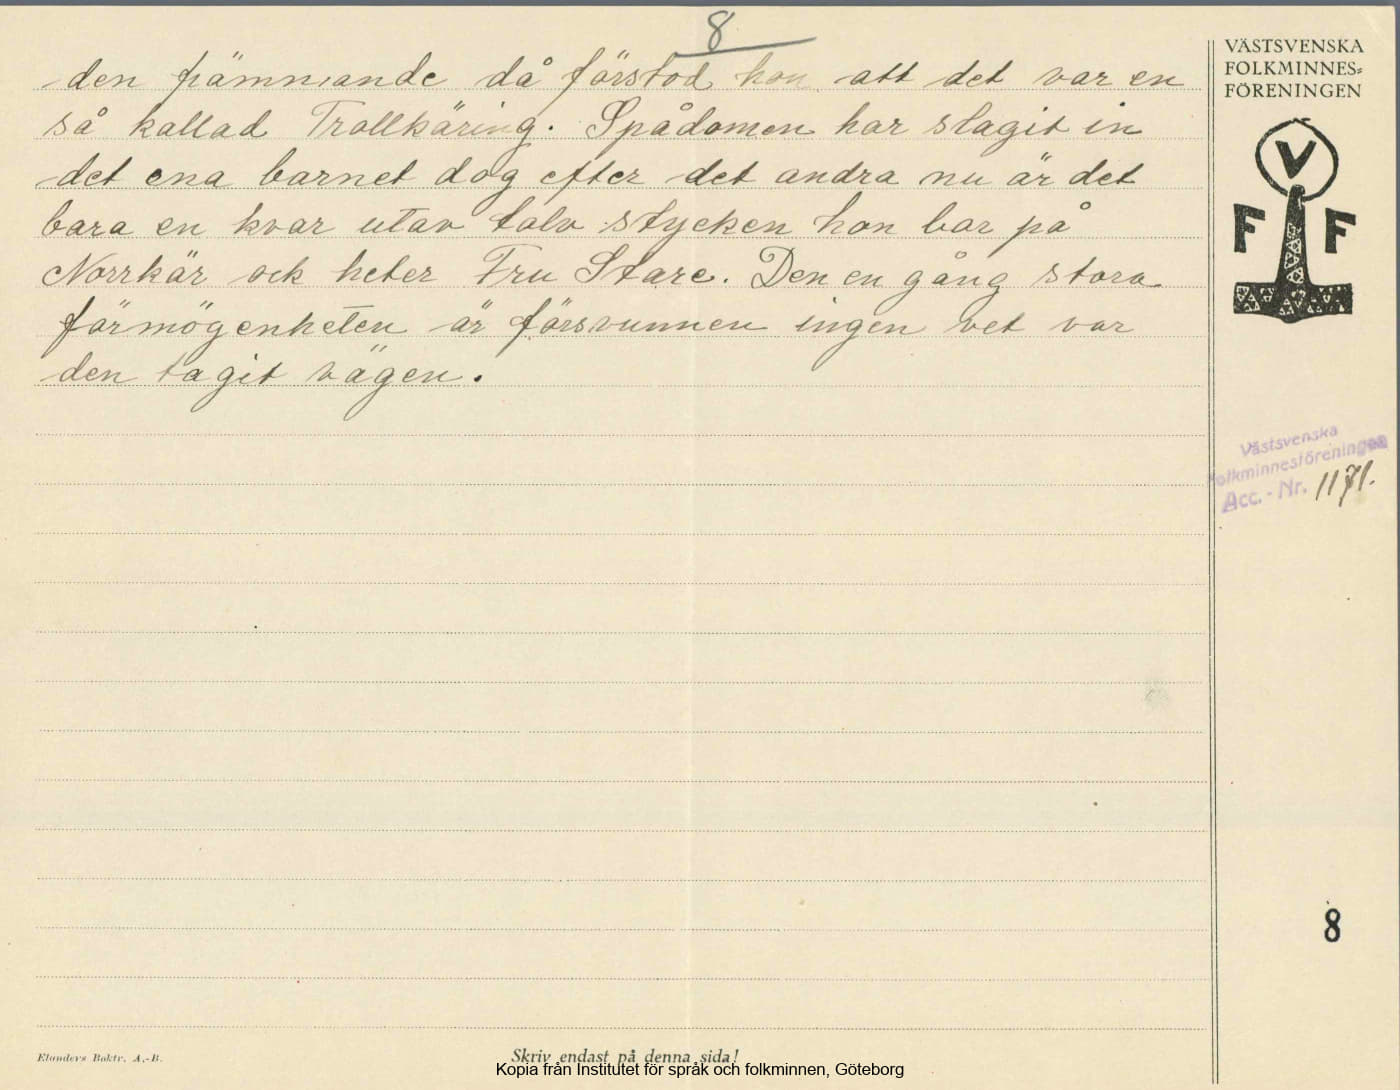 8
den främmande då förstod hon att det var en
så kallad Trollkäring. Spådomen har slagit in
det ena barnet dog efter det andra nu är det
bara en kvar utav tolv stycken hon bor på
Norrkär ock heter Fru Stare. Den en gång stora
förmögenheten är försvunnen ingen vet var
den tagit vägen.
VÄSTSVENSKA
FOLKMINNES-
FÖRENINGEN
V
F F
Västsvenska
Folkminnesföreningen
Acc.-Nr. 1171.
8
Elanders Boktr. A.-B.
Skriv endast på denna sida!
Kopia från Institutet för språk och folkminnen, Göteborg